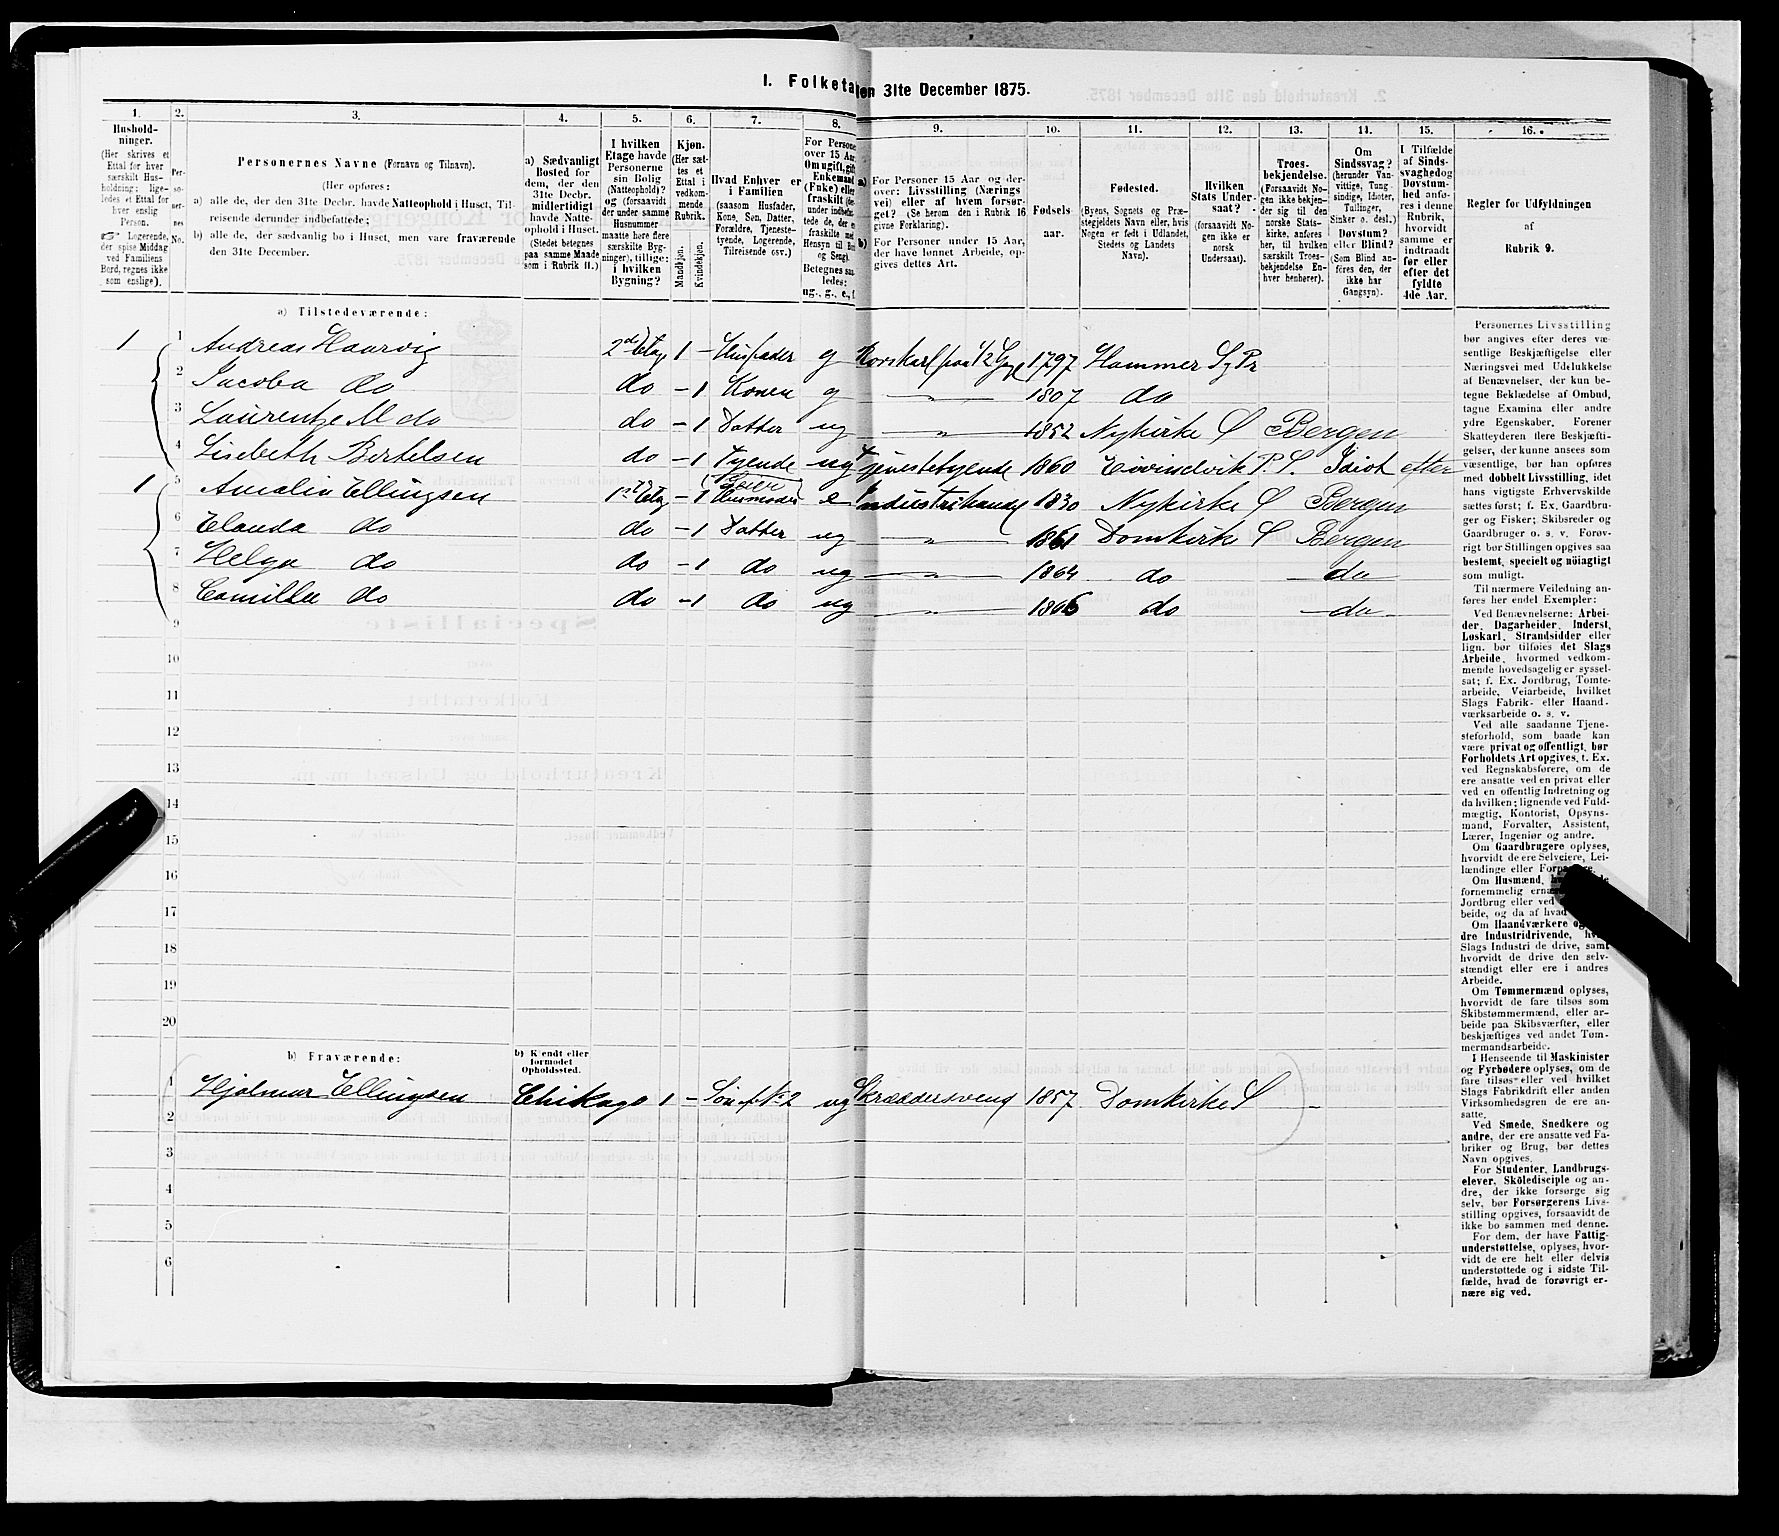 1. Folketal den 31te December 1875.
1. 2. 3. 4. 5. 6. 7. 8. 9. 10. 11. 12. 13. 14. 15. 16.
Hushold-
ninger.
(Her skrives et
Ettal for hver
særskilt Hus-
holdning; lige-
ledes et Ettal for
hver enslig
Person.
Logerende,
der spise Middag
ved Familiens
Bord, regnes ikke
som enslige).
Per-
so-
ner-
nes
No.
Personernes Navne (Fornavn og Tilnavn).
(Her opføres:
a) alle de, der den 31te Decbr. havde Natteophold i Huset, Til-
reisende derunder indbefattede;
b) alle de, der sædvanlig bo i Huset, men vare fraværende
den 31te December.
a) Sædvanligt
Bosted for
dem, der den
31te Decbr.
midlertidigt
havde Natte-
ophold i Huset.
(Stedet betegnes
paa samme Maade
som i Rubrik 11.)
I hvilken
Etage havde
Personerne
sin Bolig
(Natteophold)?
og (forsaavidt
der under samme
Husnummer
maatte høre flere
særskilte Byg-
ninger), tillige:
i hvilken
Bygning?
Kjøn.
(Her sæt-
tes et
Ettal i
vedkom-
mende
Rubrik.
Mandkjøn.
Kvindekjøn.
Hvad Enhver er
i Familien
(saasom Husfader,
Kone, Søn, Datter,
Forældre, Tjeneste-
tyende, Logerende,
Tilreisende osv.)
For Persone
over 15 Aar
Om ugift, gift
Enkemand
(Enke) eller
fraskilt (der-
under indbefat-
tede de, der e
fraskilte med
Hensyn til Bo
og Seng).
Betegnes saa-
ledes:
ug., g., e., f.
a) For Personer 15 Aar og der-
over: Livsstilling (Nærings
vei) eller af hvem forsør-
get? (Se herom den i Rubrik 16
givne Forklaring).
b) For Personer under 15 Aar,
der have lønnet Arbeide, op-
gives dettes Art.
Fødsels
aar.
Fødested.
(Byens, Sognets og Præ-
stegjeldets Navn eller, hvis
Nogen er født i Udlandet,
Stedets og Landets
Navn).
Hvilken
Stats Under-
saat?
(forsaavidt No-
gen ikke er
norsk
Undersaat).
Troes-
bekjendelse.
(Forsaavidt No-
gen ikke bekjen-
der sig til den
norske Stats-
kirke, anføres
her, til hvilken
særskilt Troes-
bekjendelse En-
hver henhører).
Om
Sindssvag?
(herunder Van-
vittige, Tung-
sindige, Idioter,
Tullinger,
Sinker o. desl.)
Døvstum?
eller Blind?
(Som Blind an-
føres den, der
ikke har
Gangsyn).
I Tilfælde
af Sinds-
svaghed og
Døvstum-
hed anfø-
res i denne
Rubrik,
hvorvidt
samme er
indtraadt
før eller
efter det
fyldte
4de Aar.
Regler for Udfyldningen
af
Rubrik 9.
a) Tilstedeværende:
1 1 Andreas Haarvig 2den Etag 1 – Husfader g 1797 Hammer
2 Jacoba do do – 1 Konen g 1807 do
3 Laurentze M do do – 1 Datter ug 1852 Nykirke S Bergen
4 Lisebeth Bertelsen do – 1 Tyende ug Tjenestetyende 1860 Eivindvik P. S. Idiot efter
1 5 Amalia Ellingsen 1ste Etag – 1 Husmoder e 1830 Nykirke S Bergen
6 Elauda do do – 1 Datter ug 1861 Domkirke S Bergen
7 Helga do do – 1 do ug 1864 do do
8 Camilla do do – 1 do ug 1866 do do
9
10
11
12
13
14
15
16
17
18
19
20
b) Fraværende:
b) Kjendt eller
formodet
Opholdssted.
1 Hjalmar Ellingsen Chikago 1 – Søn af No 2 ug Skræddersvend 1857 Domkirke S –
2
3
4
5
6
Personernes Livsstilling
bør angives efter deres væ-
sentlige Beskjæftigelse eller
Næringsvei med Udelukkelse
af Benævnelser, der kun be-
tegne Beklædelse af Ombud,
tagne Examina eller andre
ydre Egenskaber. Forener
Skatteyderen flere Beskjæfti-
gelser, der kunne ansees som
væsentlige, bør han opføres
med dobbelt Livsstilling, idet
hans vigtigste Erhvervskilde
sættes først; f. Ex. Gaardbru-
ger og Fisker; Skibsreder og
Gaardbruger o. s. v. Forøv-
rigt bør Stillingen opgives saa
bestemt, specielt og nöiagtigt
som muligt.
Til nærmere Veiledning an-
føres her endel Exempler:
Ved Benævnelserne: Arbei-
der, Dagarbeider, Inderst,
Løskarl, Strandsidder eller
lign. bør tilføies det Slags
Arbeide, hvormed vedkom-
mende hovedsagelig er syssel-
sat; f. Ex. Jordbrug, Tomte-
arbeide, Veiarbeide, hvilket
Slags Fabrik- eller Haand-
værksarbeide o. s. v.
Ved alle saadanne Tjene-
steforhold, som baade kan
være privat og offentligt, bør
Forholdets Art opgives, t. Ex.
ved Regnskabsførere, om de
ere ansatte ved en privat eller
ved en offentlig Indretning og
da hvilken; lignende ved Fuld-
mægtig, Kontorist, Opsyns-
mand, Forvalter, Assistent,
Lærer, Ingeniør og andre.
Om Gaardbrugere oplyses,
hvorvidt de ere Selveiere, Lei-
lændinge eller
Om Husmænd,
fornemmelig
Jordbrug eller ved
beide, og da af hvad
Om Haandværkere og
dre Industridrivende,
Slags Industri de drive, samt
hvorvidt de drive den selv-
stændigt eller ere i andres
Arbeide.
Om Tømmermænd oplyses,
hvorvidt de fare tilsøs som
Skibstømmermænd, eller ar-
beide paa Skibsværfter, eller
beskjæftiges ved andet Tøm-
mermandsarbeide.
I Henseende til Maskinister
og Fyrbødere oplyses, om de
fare tilsøs eller ved hvilket
Slags Fabrikdrift eller anden
Virksomhedsgren de ere an-
satte.
Ved Smede, Snedkere og
andre, der ere ansatte ved Fa-
briker og Brug, bør dettes
Navn opgives.
For Studenter, Landbrugs-
elever, Skoledisciple og an-
dre, der ikke forsørge sig
selv, bør Forsørgerens Livs-
stilling opgives, forsaavidt de
ikke bo sammen med denne.
For dem, der have Fattig-
understøttelse, oplyses, hvor-
vidt de ere helt eller delvis
understøttede og i sidste Til-
fælde, hvad de forøvrigt er-
nære sig ved.